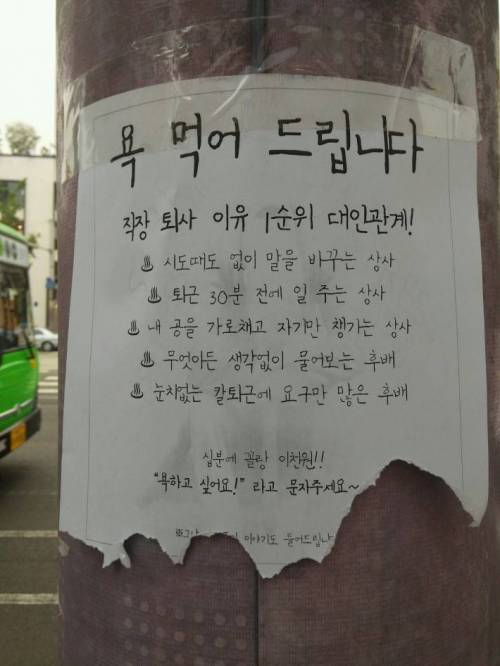 욕 먹어 드립니다
직장 퇴사 이유 1순위 대인관계!
♨ 시도때도 없이 말을 바꾸는 상사
♨ 퇴근 30분 전에 일 주는 상사
♨ 내 공을 가로채고 자기만 챙가는 상사
♨ 무엇이든 생각없이 물어보는 후배
♨ 눈치없는 칼퇴근에 요구만 많은 후배
십분에 꼴랑 이천원!!
"욕하고 싶어요!" 라고 문자주세요~
이야기도 들어드립니